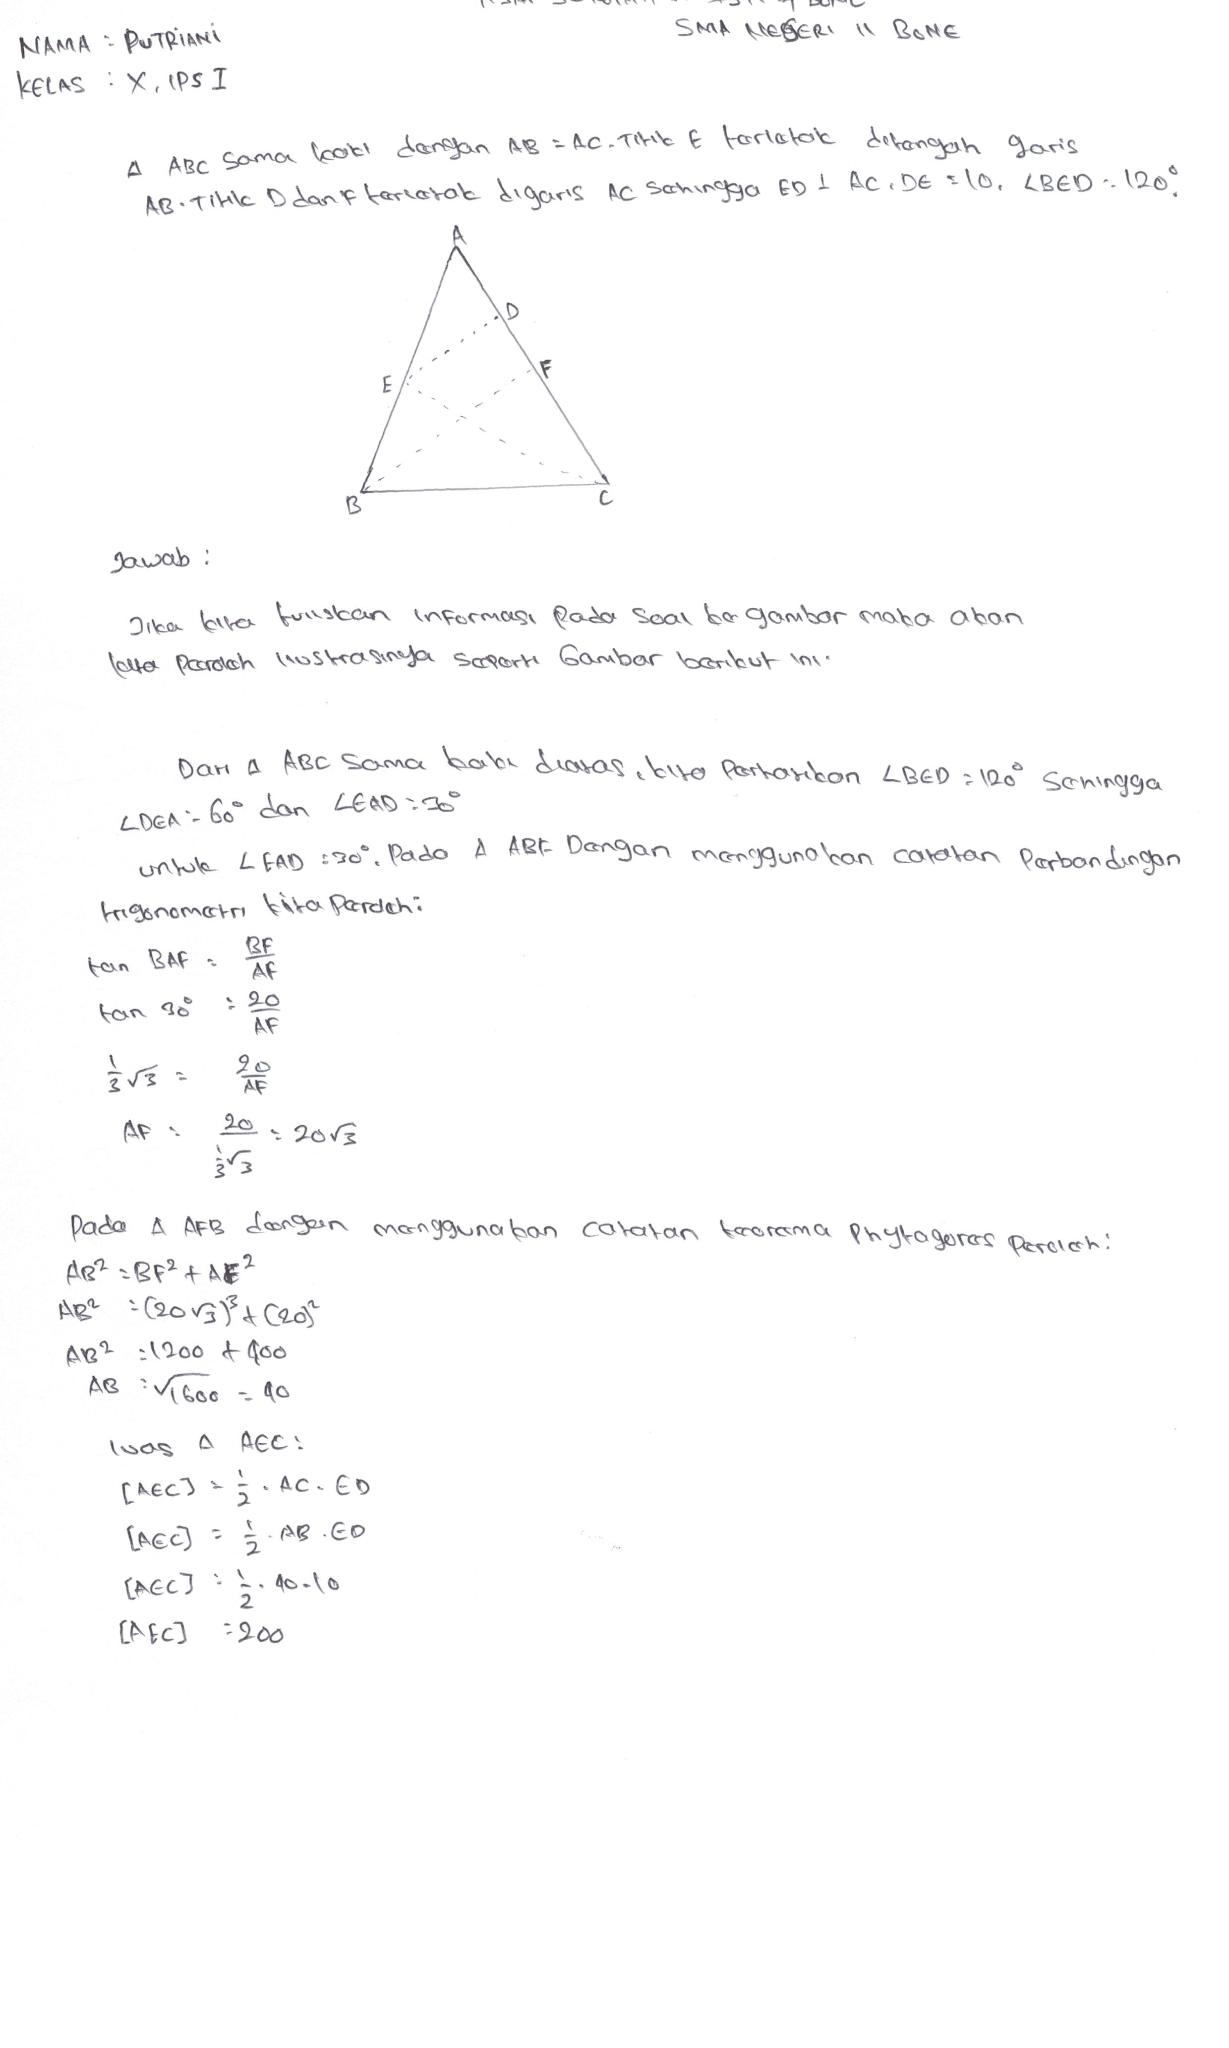 NAMA : PUTRIANI
SMA NEGERI 11 BONE
KELAS : X, IPS I
Δ ABC Sama kaki dengan AB = AC. Titik E terletak ditengah garis
AB. Titik D dan F terletak digaris AC Sehingga ED ⊥ AC, DE = 10, ∠BED = 120°
A
D
F
E
B
C
Jawab :
Jika kita tuliskan informasi Pada Soal ke gambar maka akan
kita Peroleh ilustrasinya Seperti Gambar berikut ini.
Dari Δ ABC Sama kaki diatas, kita Perhatikan ∠BED = 120° Sehingga
∠DEA = 60° dan ∠EAD = 30°
untuk ∠EAD = 30°. Pada Δ ABF Dengan menggunakan catatan Perbandingan
trigonometri kita Peroleh :
tan BAF = BF/AF
tan 30° = 20/AF
1/3 √3 = 20/AF
AF = 20/(1/3 √3) = 20√3
Pada Δ AFB dengan menggunakan catatan teorema Phytagoras Peroleh :
AB² = BF² + AF²
AB² = (20√3)³ + (20)²
AB² = 1200 + 400
AB = √1600 = 40
luas Δ AEC :
[AEC] = 1/2 . AC . ED
[AEC] = 1/2 . AB . ED
[AEC] = 1/2 . 40 . 10
[AEC] = 200